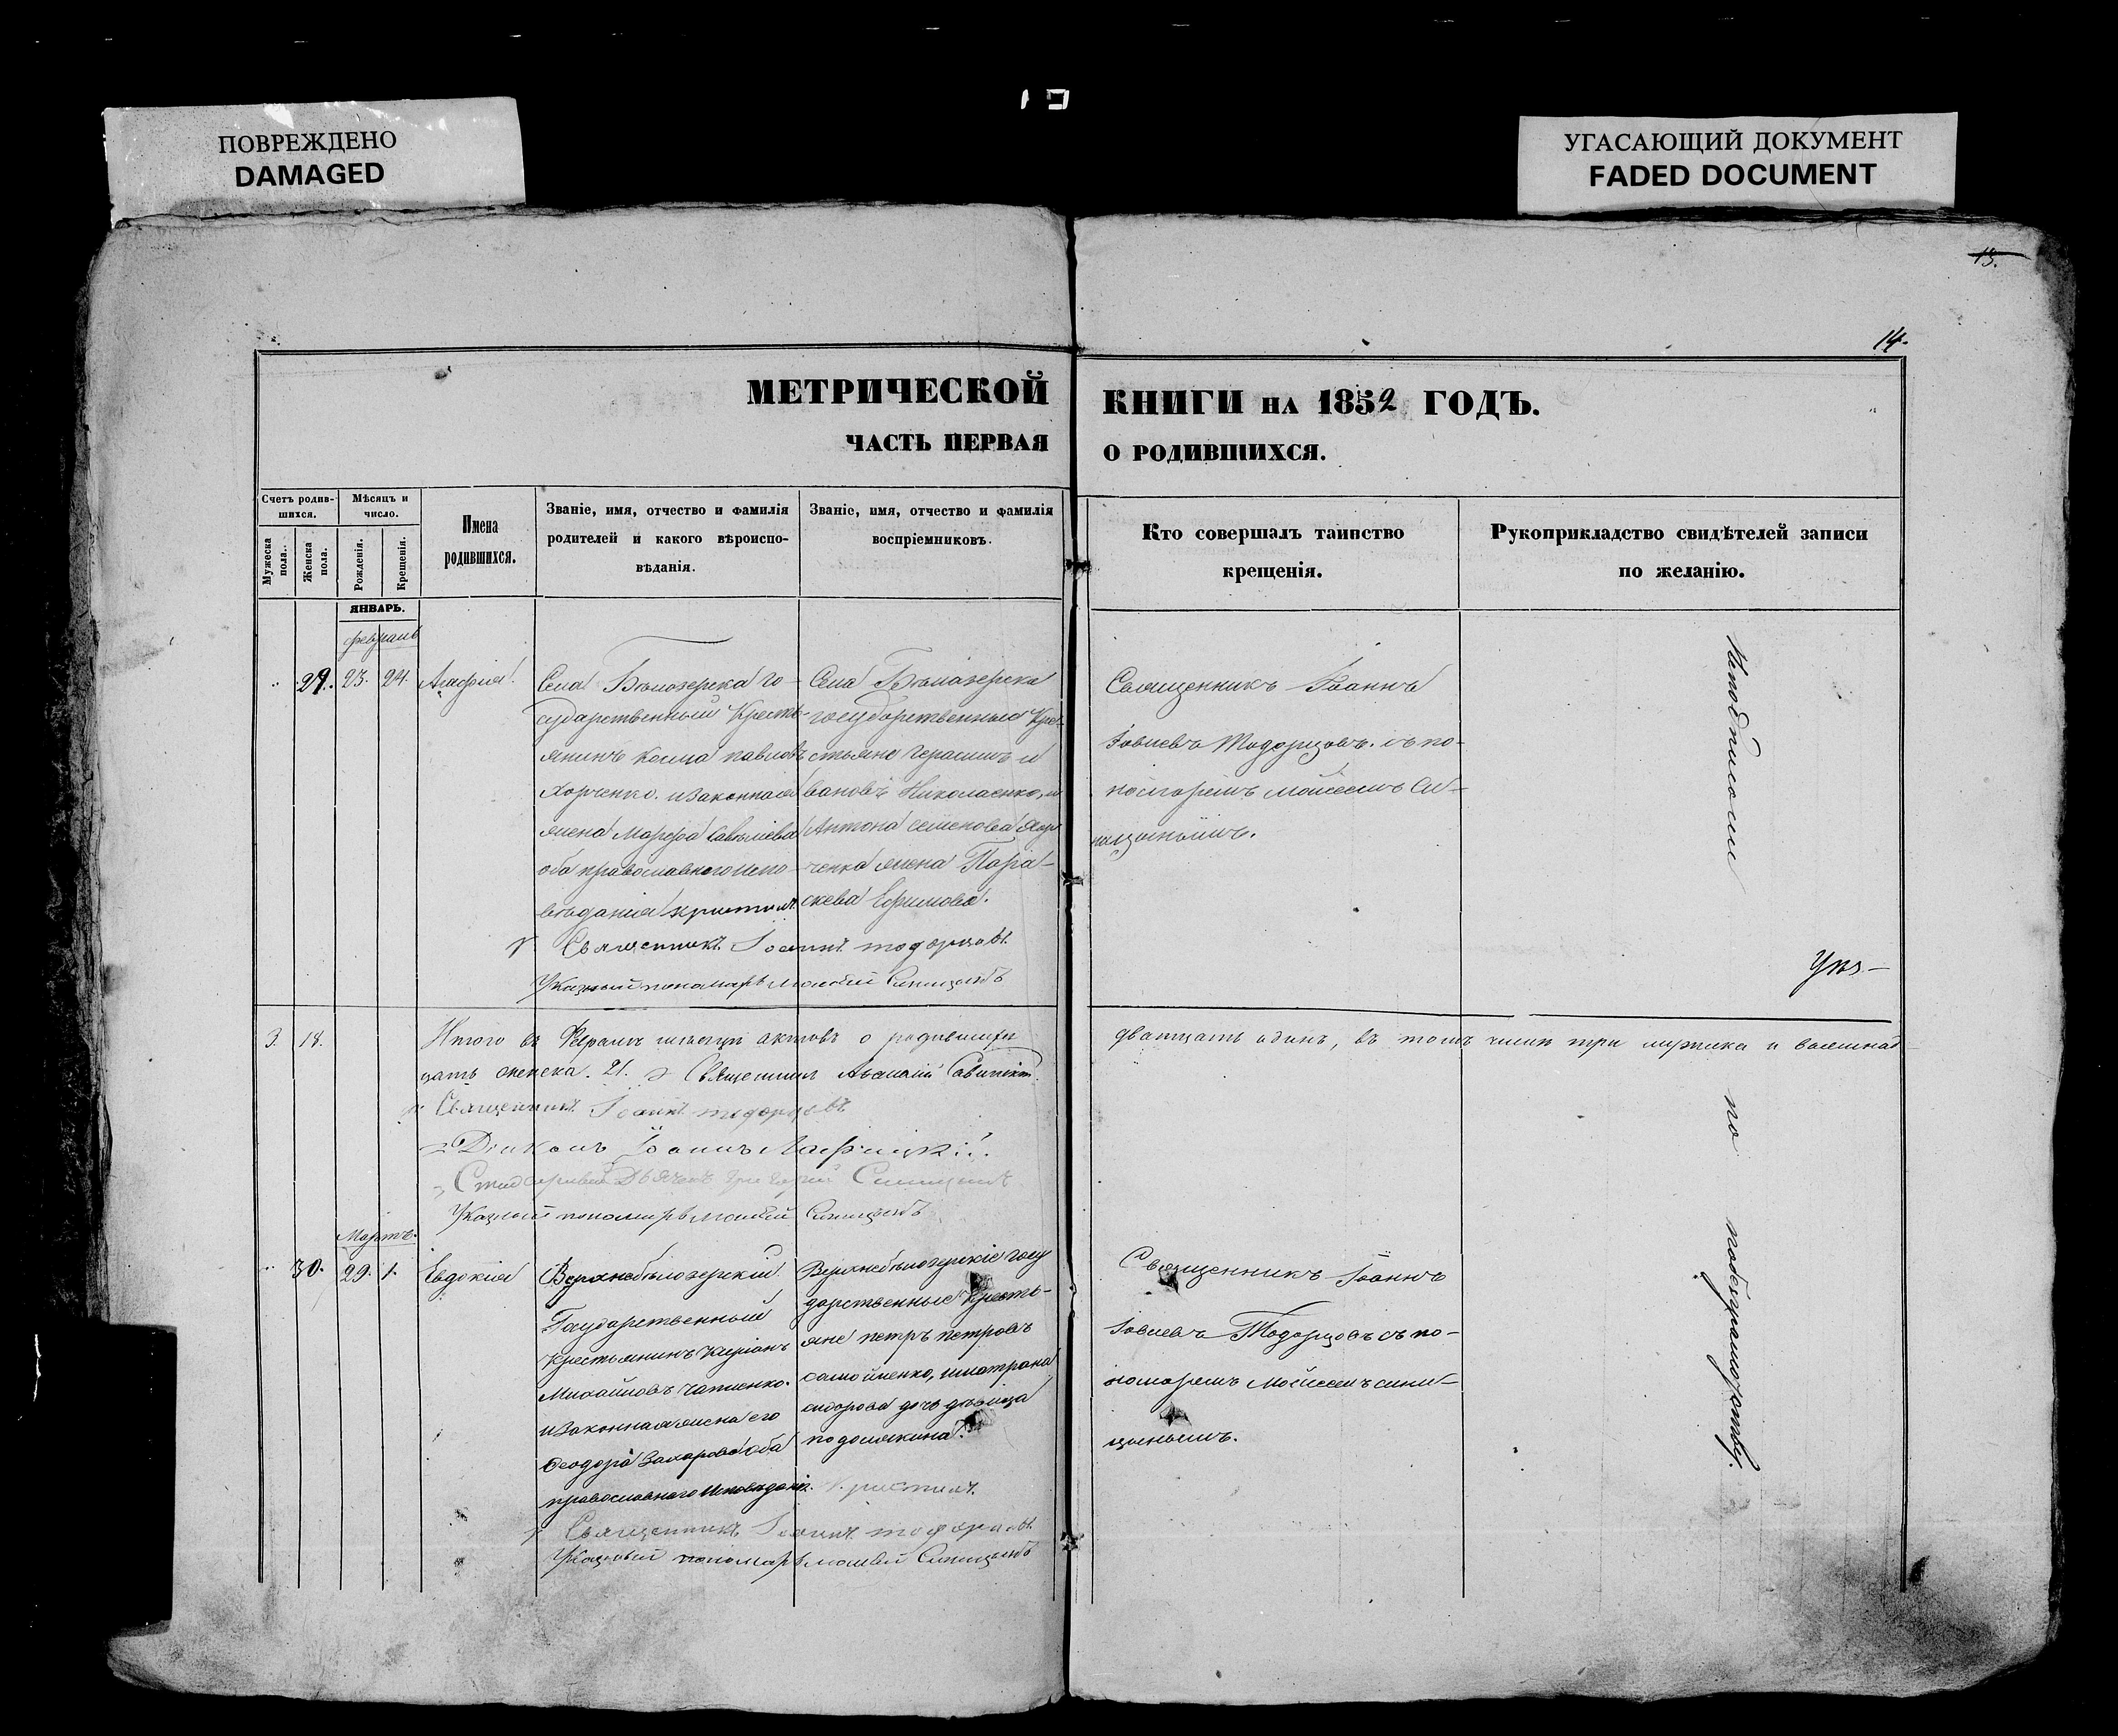 ПОВРЕЖДЕНО
DAMAGED
УГАСАЮЩИЙ ДОКУМЕНТ
FADED DOCUMENT
13.
14.
МЕТРИЧЕСКОЙ
КНИГИ НА 1852 ГОДЪ.
ЧАСТЬ ПЕРВАЯ
О РОДИВШИХСЯ.
Счетъ родив-
шихся.
Мужеска
пола.
Женска
пола.
Мѣсяцъ и
число.
Рожденія.
Крещенія.
Имена
родившихся.
Званіе, имя, отчество и фамилія
родителей и какого вѣроиспо-
вѣданія.
Званіе, имя, отчество и фамилія
воспріемниковъ.
Кто совершалъ таинство
крещенія.
Рукоприкладство свидѣтелей записи
по желанію.
ЯНВАРЬ.
29. 23. 24. Агафія
Села Бѣлозерка го-
сударственный Кресть-
янинъ Косма Павловъ
Харченко. и законная
жена Марфа Савельева
оба православнаго испо-
вѣданія
Села Бѣлозерка
государственные Кре-
стьяне Герасимъ и
вановъ Николаенко, и
Антона Семенова Хар
ченка жена Пара-
скева Ефимова.
Священникъ Іоаннъ Тодорцовъ
Указный пономарь Моисей Синицынъ
Священникъ Іоаннъ
Іовлевъ Тодорцовъ. съ по-
номаремъ Моисеемъ Си-
ницынымъ.
Неподписали
по
3. 18.
Итого въ Февралѣ мѣсяцѣ актовъ о родившихся
двадцать одинъ, въ томъ числѣ три мужеска и восемнад
цать женска. 21. Священникъ
Священникъ Іоаннъ Тодорцовъ
Діаконъ Іоаннъ
Григорій Синицынъ
Указный пономарь Моисей Синицынъ
Мартъ.
30. 29. 1. Евдокія
Верхнебѣлозерскій
Государственный
крестьянинъ
Михайловъ
и законная жена его
Феодора Захарова оба
православнаго исповѣданія.
Верхнебѣлозерскіе госу
дарственные кресть-
яне Петръ Петровъ
Самойленко, и Матрона
Сидорова дочь дѣвица
Священникъ Іоаннъ Тодорцовъ
Указный пономарь Моисей Синицынъ
Священникъ Іоаннъ
Іовлевъ Тодорцовъ съ по-
номаремъ Моисеемъ Сини-
цынымъ.